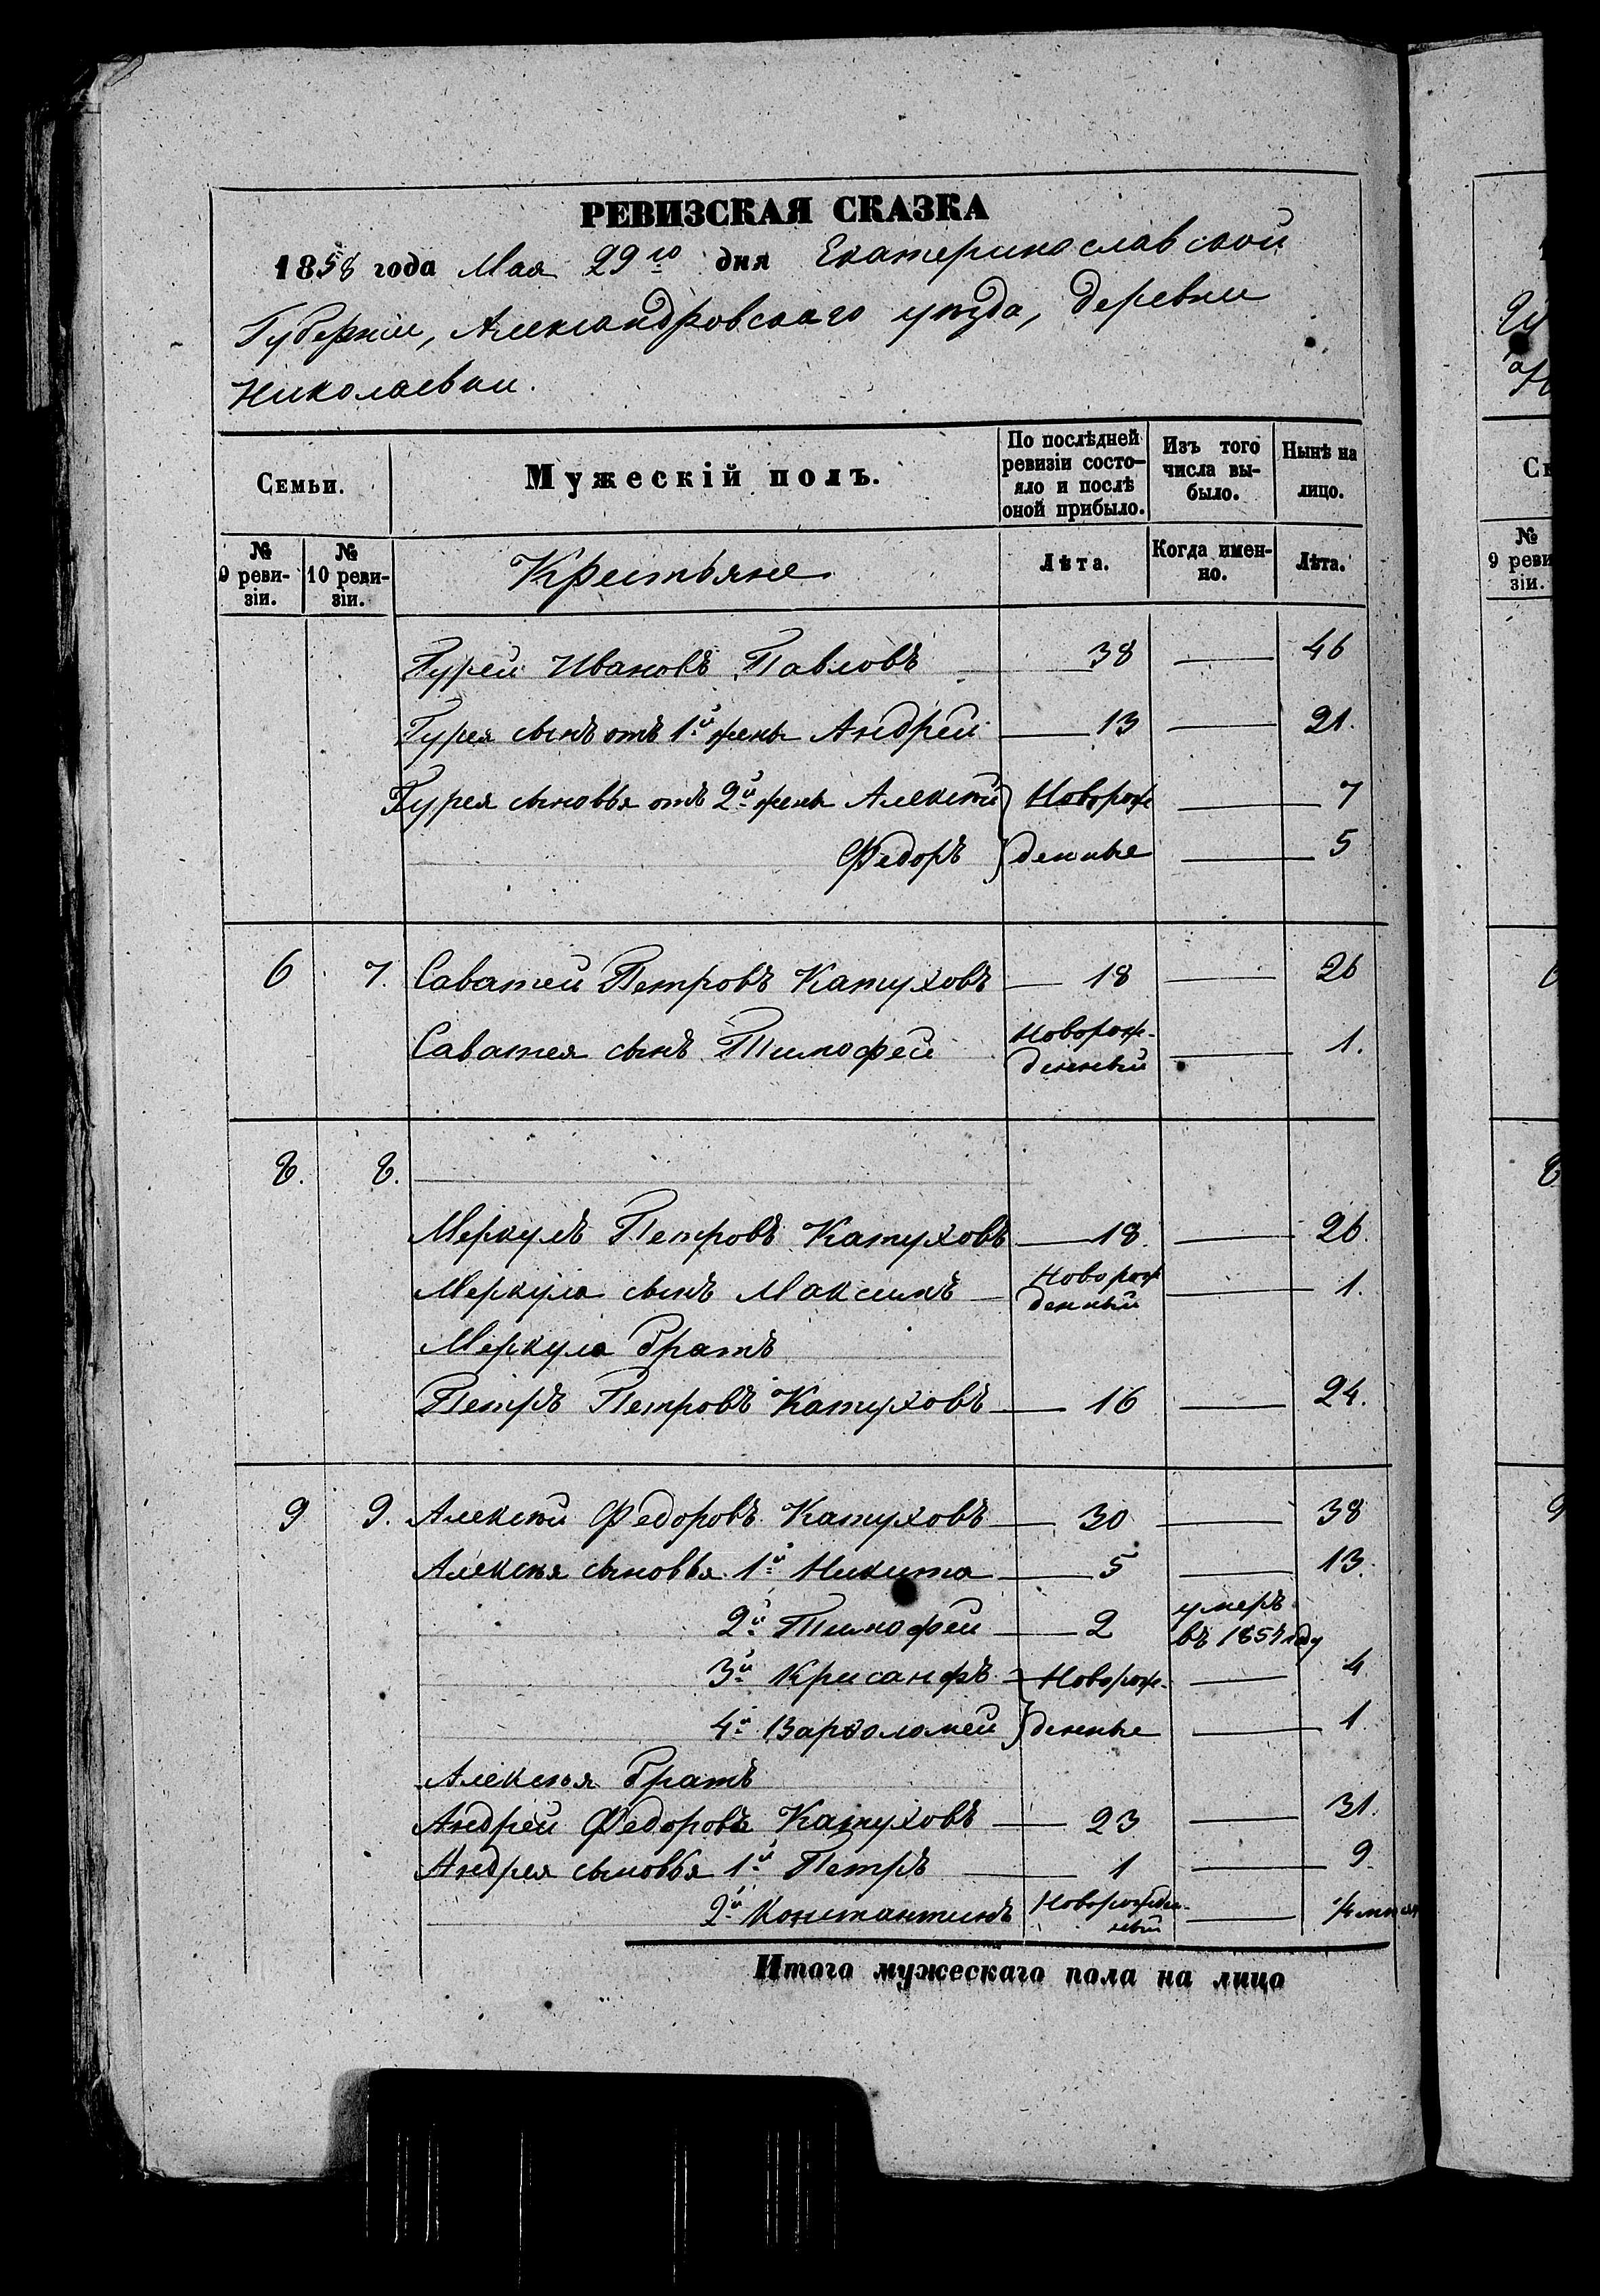 РЕВИЗСКАЯ СКАЗКА
1858 года Мая 29го дня Екатеринославской
Губернiи, Александровскаго уѣзда, деревни
Николаевки.
Семьи.
Мужескiй полъ.
По послѣдней ревизiи состо-
яло и послѣ
оной прибыло.
Изъ того
числа вы-
было.
Нынѣ на
лицо.
№
9 реви-
зiи.
№
10 реви-
зiи.
Крестьяне
Лѣта.
Когда имен-
но.
Лѣта.
Гурей Ивановъ Павловъ 38 46
Гурея сынъ отъ 1й жены Андрей 13 21.
Гурея сыновья отъ 2й жены Алексѣй } Новорож 7
Федоръ } денные 5
6 7. Саватей Петровъ Катуховъ 18 26
Саватея сынъ Тимофей Новорож-
денный 1.
8. 8.
Меркулъ Петровъ Катуховъ 18. 26.
Меркула сынъ Максимъ Новорож
денный 1.
Меркула братъ
Петръ Петровъ Катуховъ 16 24.
9 9. Алексѣй Федоровъ Катуховъ 30 38
Алексѣя сыновья 1й Никита 5 13.
2й Тимофей 2 умеръ
въ 1851 году
3й Крисанфъ Новорож- 4
4й Варфоломей } денные 1.
Алексѣя братъ
Андрей Федоровъ Катуховъ 23 31.
Андрея сыновья 1й Петръ 1 9.
2й Константинъ Новорожден-
ный
Итого мужескаго пола на лицо
№
9 реви
зiи.